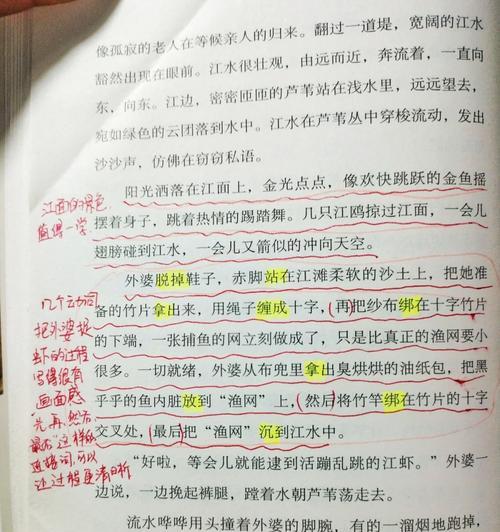 像孤寂的老人在等候亲人的归来。翻过一道堤，宽阔的江水
豁然出现在眼前。江水很壮观，由远而近，奔流着，一直向
东，向东。江边，密密匝匝的芦苇站在浅水里，远远望去，
宛如绿色的云团落到水中。江水在芦苇丛中穿梭流动，发出
沙沙声，仿佛在窃窃私语。
阳光洒落在江面上，金光点点，像欢快跳跃的金鱼摇
摆着身子，跳着热情的踢踏舞。几只江鸥掠过江面，一会儿
翅膀碰到江水，一会儿又箭似的冲向天空。
外婆脱掉鞋子，赤脚站在江滩柔软的沙土上，把她准
备的竹片拿出来，用绳子缠成十字，再把纱布绑在十字竹片
的下端，一张捕鱼的网立刻做成了，只是比真正的渔网要小
很多。一切就绪，外婆从布兜里拿出臭烘烘的油纸包，把黑
乎乎的鱼内脏放到“渔网”上，然后将竹竿绑在竹片的十字
交叉处，最后把“渔网”沉到江水中。
“好啦，等会儿就能逮到活蹦乱跳的江虾。”外婆一
边说，一边挽起裤腿，蹚着水朝芦苇荡走去。
流水哗哗用头撞着外婆的脚腕，有的一溜烟地跑掉，
江面的景色
值得一学
几个动词
把外婆捉
虾的过程
写得很有
画面感
先再,然后
最后”这样的
连接词,可以
让过程更清晰